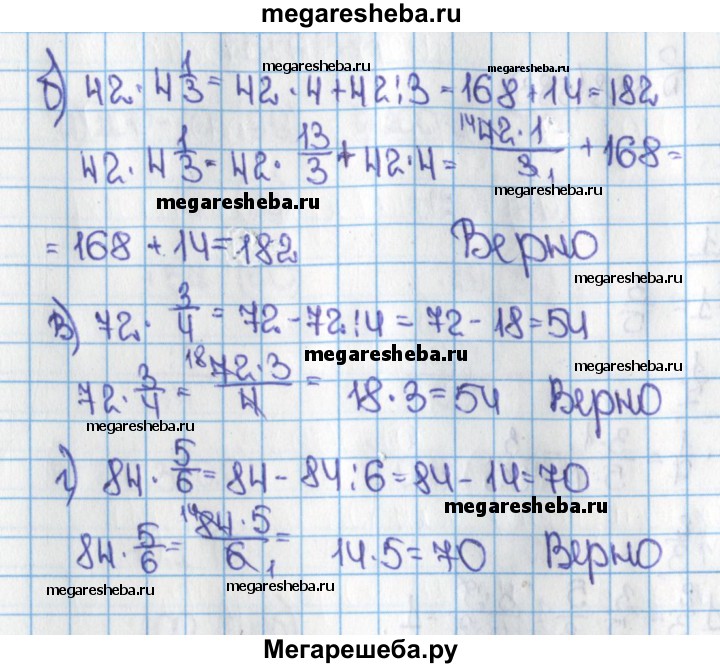 megaresheba.ru
megaresheba.ru
megaresheba.ru
б) 42 · 4 1/3 = 42 · 4 + 42 : 3 = 168 + 14 = 182
megaresheba.ru
42 · 4 1/3 = 42 · 13/3 + 42 · 4 = 14 42 · 1 / 3 1 + 168 =
megaresheba.ru
megaresheba.ru
= 168 + 14 = 182 Верно
megaresheba.ru
в) 72 · 3/4 = 72 - 72 : 4 = 72 - 18 = 54
megaresheba.ru
megaresheba.ru
72 · 3/4 = 18 72 · 3 / 4 = 18 · 3 = 54 Верно
megaresheba.ru
megaresheba.ru
г) 84 · 5/6 = 84 - 84 : 6 = 84 - 14 = 70
megaresheba.ru
84 · 5/6 = 14 84 · 5 / 6 1 = 14 · 5 = 70 Верно
megaresheba.ru
megaresheba.ru
megaresheba.ru
Мегарешеба.ру